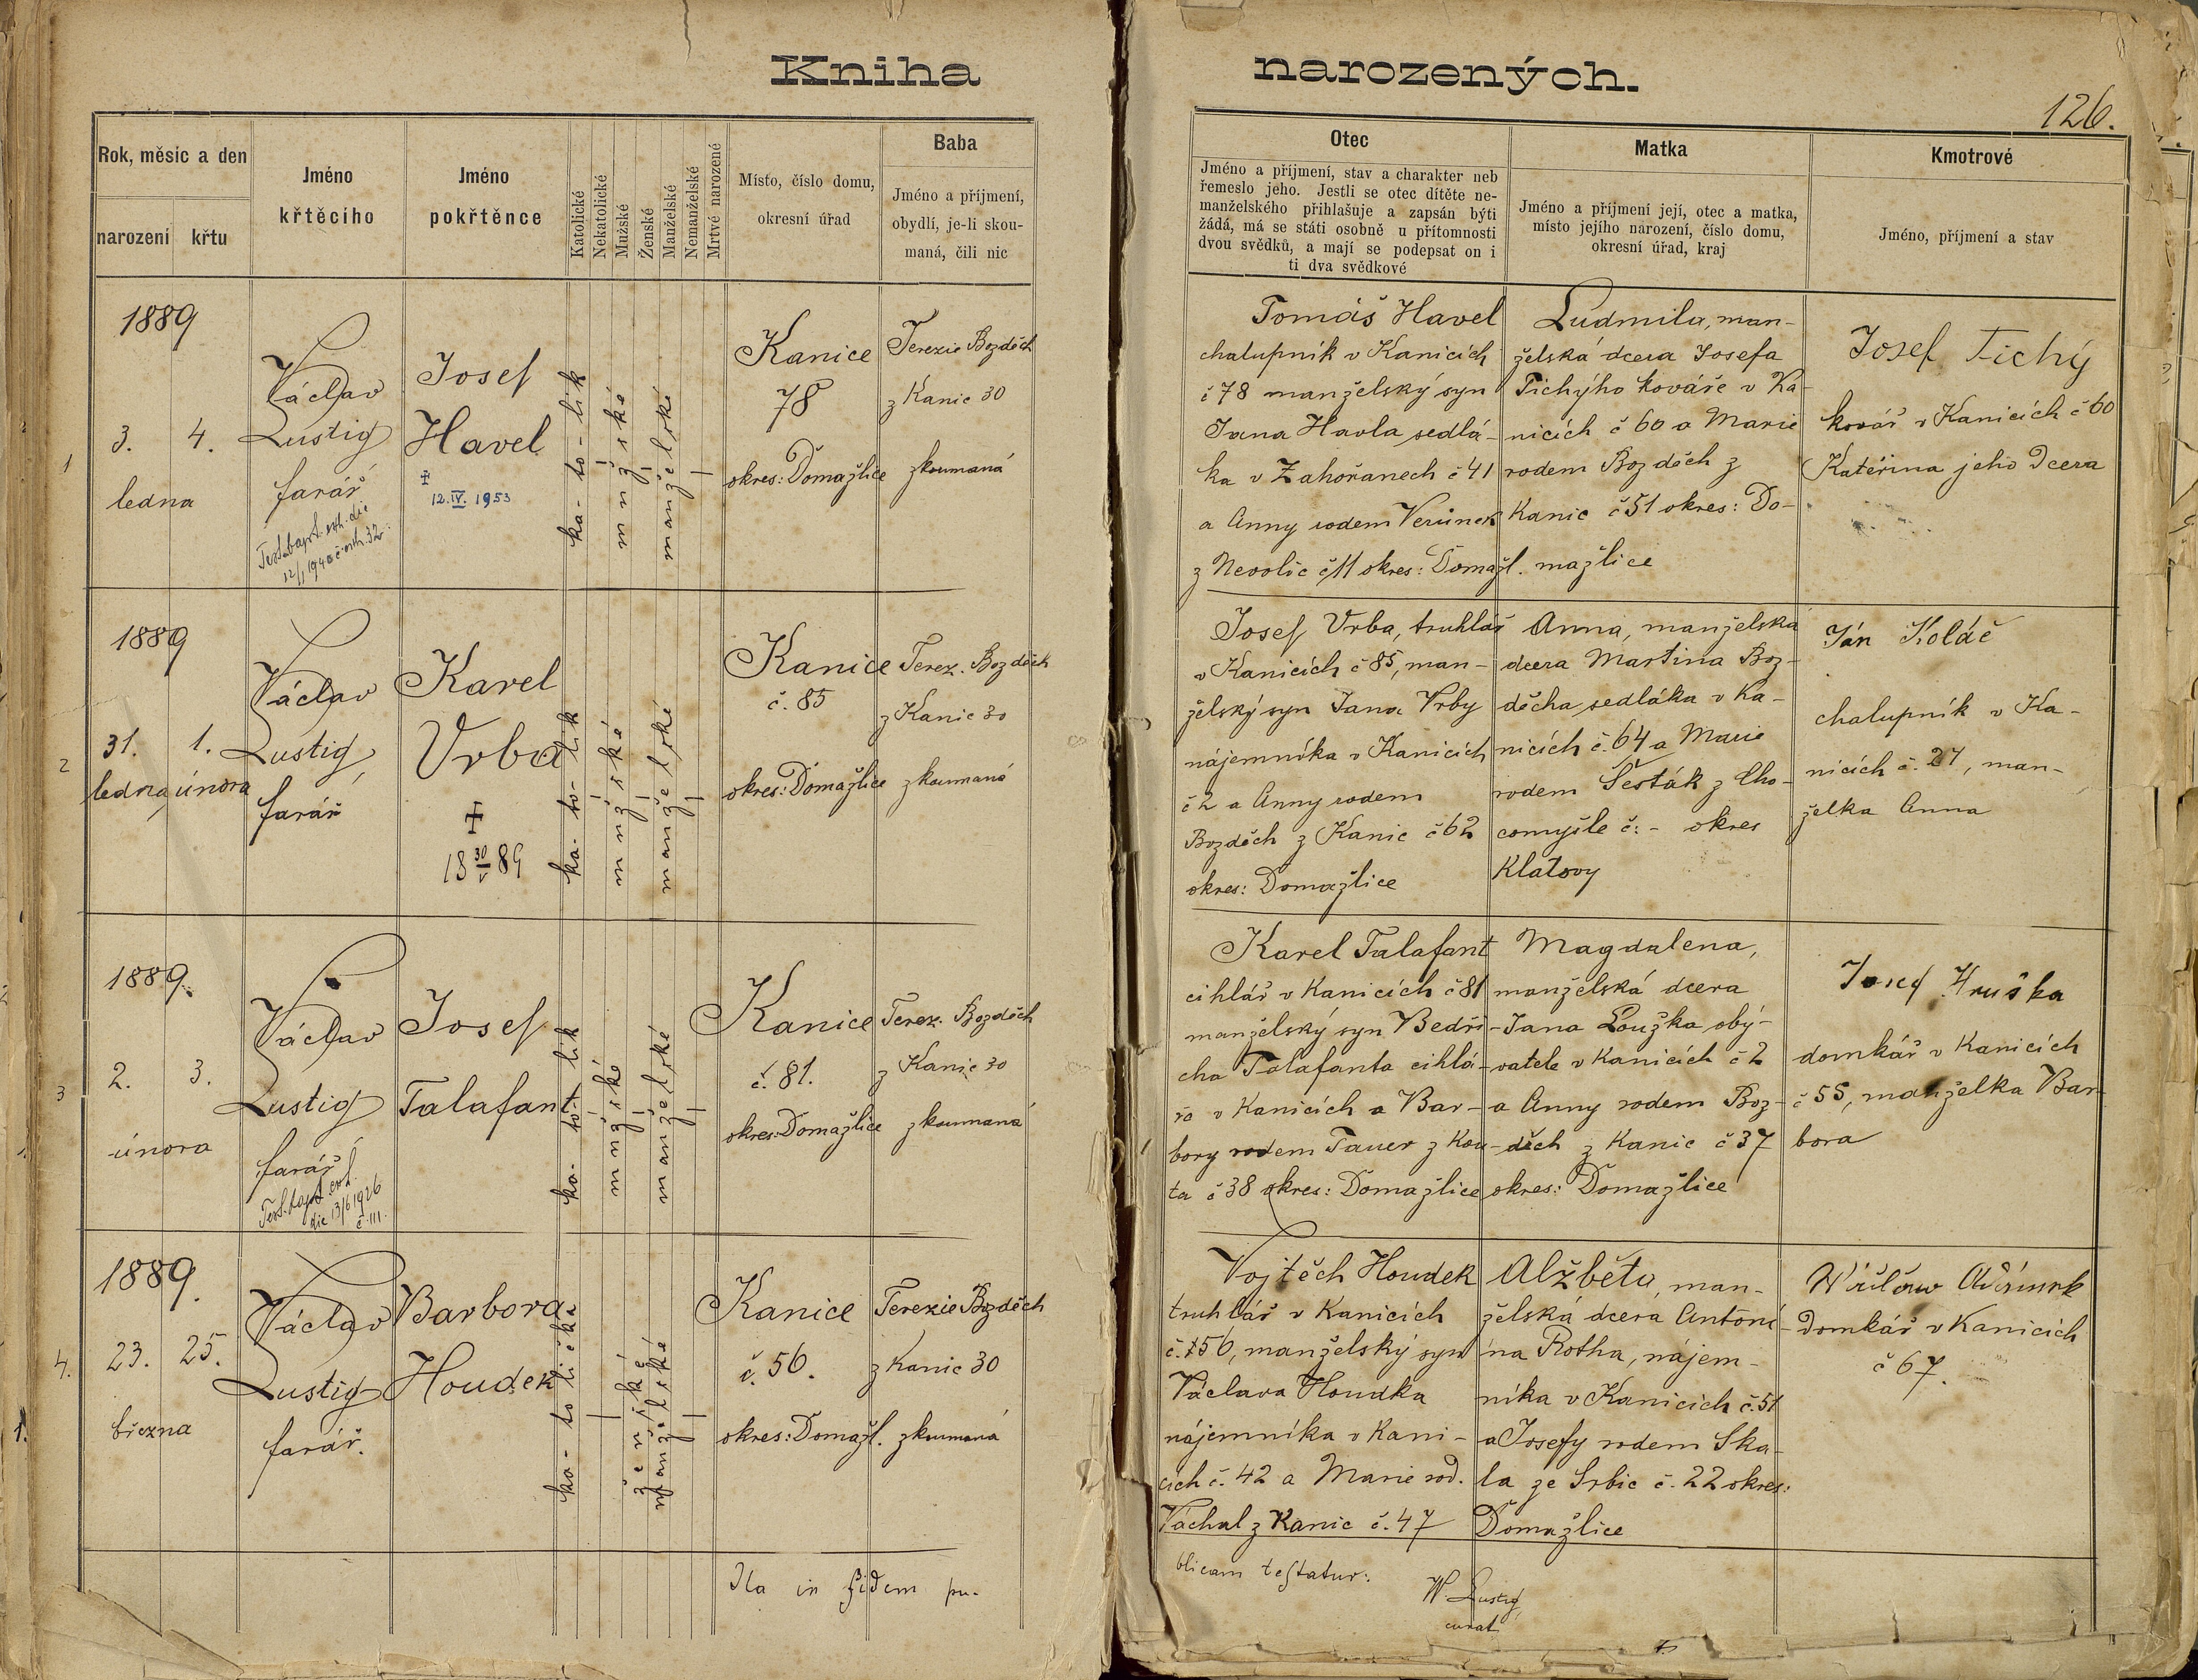 Kniha narozených.
126.
Rok, měsíc a den
narození křtu
Jméno
křtěcího
Jméno
pokřtěnce
Katolické
Nekatolické
Mužské
Ženské
Manželské
Nemanželské
Mrtvé narozené
Místo, číslo domu,
okresní úřad
Baba
Jméno a příjmení,
obydlí, je-li skou-
maná, čili nic
Otec
Jméno a příjmení, stav a charakter neb
řemeslo jeho. Jestli se otec dítěte ne-
manželského přihlašuje a zapsán býti
žádá, má se státi osobně u přítomnosti
dvou svědků, a mají se podepsat on i
ti dva svědkové
Matka
Jméno a příjmení její, otec a matka,
místo jejího narození, číslo domu,
okresní úřad, kraj
Kmotrové
Jméno, příjmení a stav
1
1889
3. 4.
ledna
Václav
Lustig
farář
Josef
Havel
12. IV. 1953
ka-to-lík
mužské
manželské
Kanice
78
okres: Domažlice
Terezie Bozděch
z Kanic 30
zkoumaná
Tomáš Havel
chalupník v Kanicích
č 78 manželský syn
Jana Havla sedlá-
ka v Zahořanech č 41
a Anny rodem Verünek
z Nevolic č 11 okres: Domažl.
Ludmila, man-
želská dcera Josefa
Tichýho kováře v Ka-
nicích č 60 a Marie
rodem Bozděch z
Kanic č 51 okres: Do-
mažlice
Josef Tichý
kovář v Kanicích č 60
Kateřina jeho dcera
2
1889
31. 1.
ledna, února
Václav
Lustig,
farář
Karel
Vrba
18 30/V 89
ka-to-lík
mužské
manželské
Kanice
č. 85
okres: Domažlice
Terez. Bozděch
z Kanic 30
zkoumaná
Josef Vrba, truhlář
v Kanicích č 85, man-
želský syn Jana Vrby
nájemníka v Kanicích
č 2 a Anny rodem
Bozděch z Kanic č 62
okres: Domažlice
Anna, manželská
dcera Martina Boz-
děcha, sedláka v Ka-
nicích č. 64 a Marie
rodem Šesták z Cho-
comyšle č: - okres
Klatovy
Ján Koláč
chalupník v Ka-
nicích č. 27, man-
želka Anna
3
1889.
2. 3.
února
Václav
Lustig
farář
Josef
Talafant
ka-to-lík
mužské
manželské
Kanice
č. 81.
okres: Domažlice
Terez. Bozděch
z Kanic 30
zkoumaná
Karel Talafant
cihlář v Kanicích č 81
manželský syn Bedři-
cha Talafanta cihlá-
řa v Kanicích a Bar-
bory rodem Tauer z Kou-
ta č 38 okres: Domažlice
Magdalena,
manželská dcera
Jana Loužka oby-
vatele v Kanicích č 2
a Anny rodem Boz-
děch z Kanic č 37
okres: Domažlice
Josef Hruška
domkář v Kanicích
č 55, manželka Bar-
bora
4.
1889.
23. 25.
března
Václav
Lustig
farář.
Barbora
Houdek
ka-to-lička
ženské
manželské
Kanice
č. 56.
okres: Domažl.
Terezie Bozděch
z Kanic 30
zkoumaná
Vojtěch Houdek
truhlář v Kanicích
č. 56, manželský syn
Václava Houdka
nájemníka v Kani-
cích č. 42 a Marie rod.
Váchal z Kanic č. 47
Alžběta, man-
želská dcera Antoní-
na Rotha, nájem-
níka v Kanicích č. 51
a Josefy rodem Ska-
la ze Srbic č. 22 okres:
Domažlice
Wáclaw Adámek
domkář v Kanicích
č 67.
Ita in fidem pu-
blicam testatur:
W. Lustig,
curat